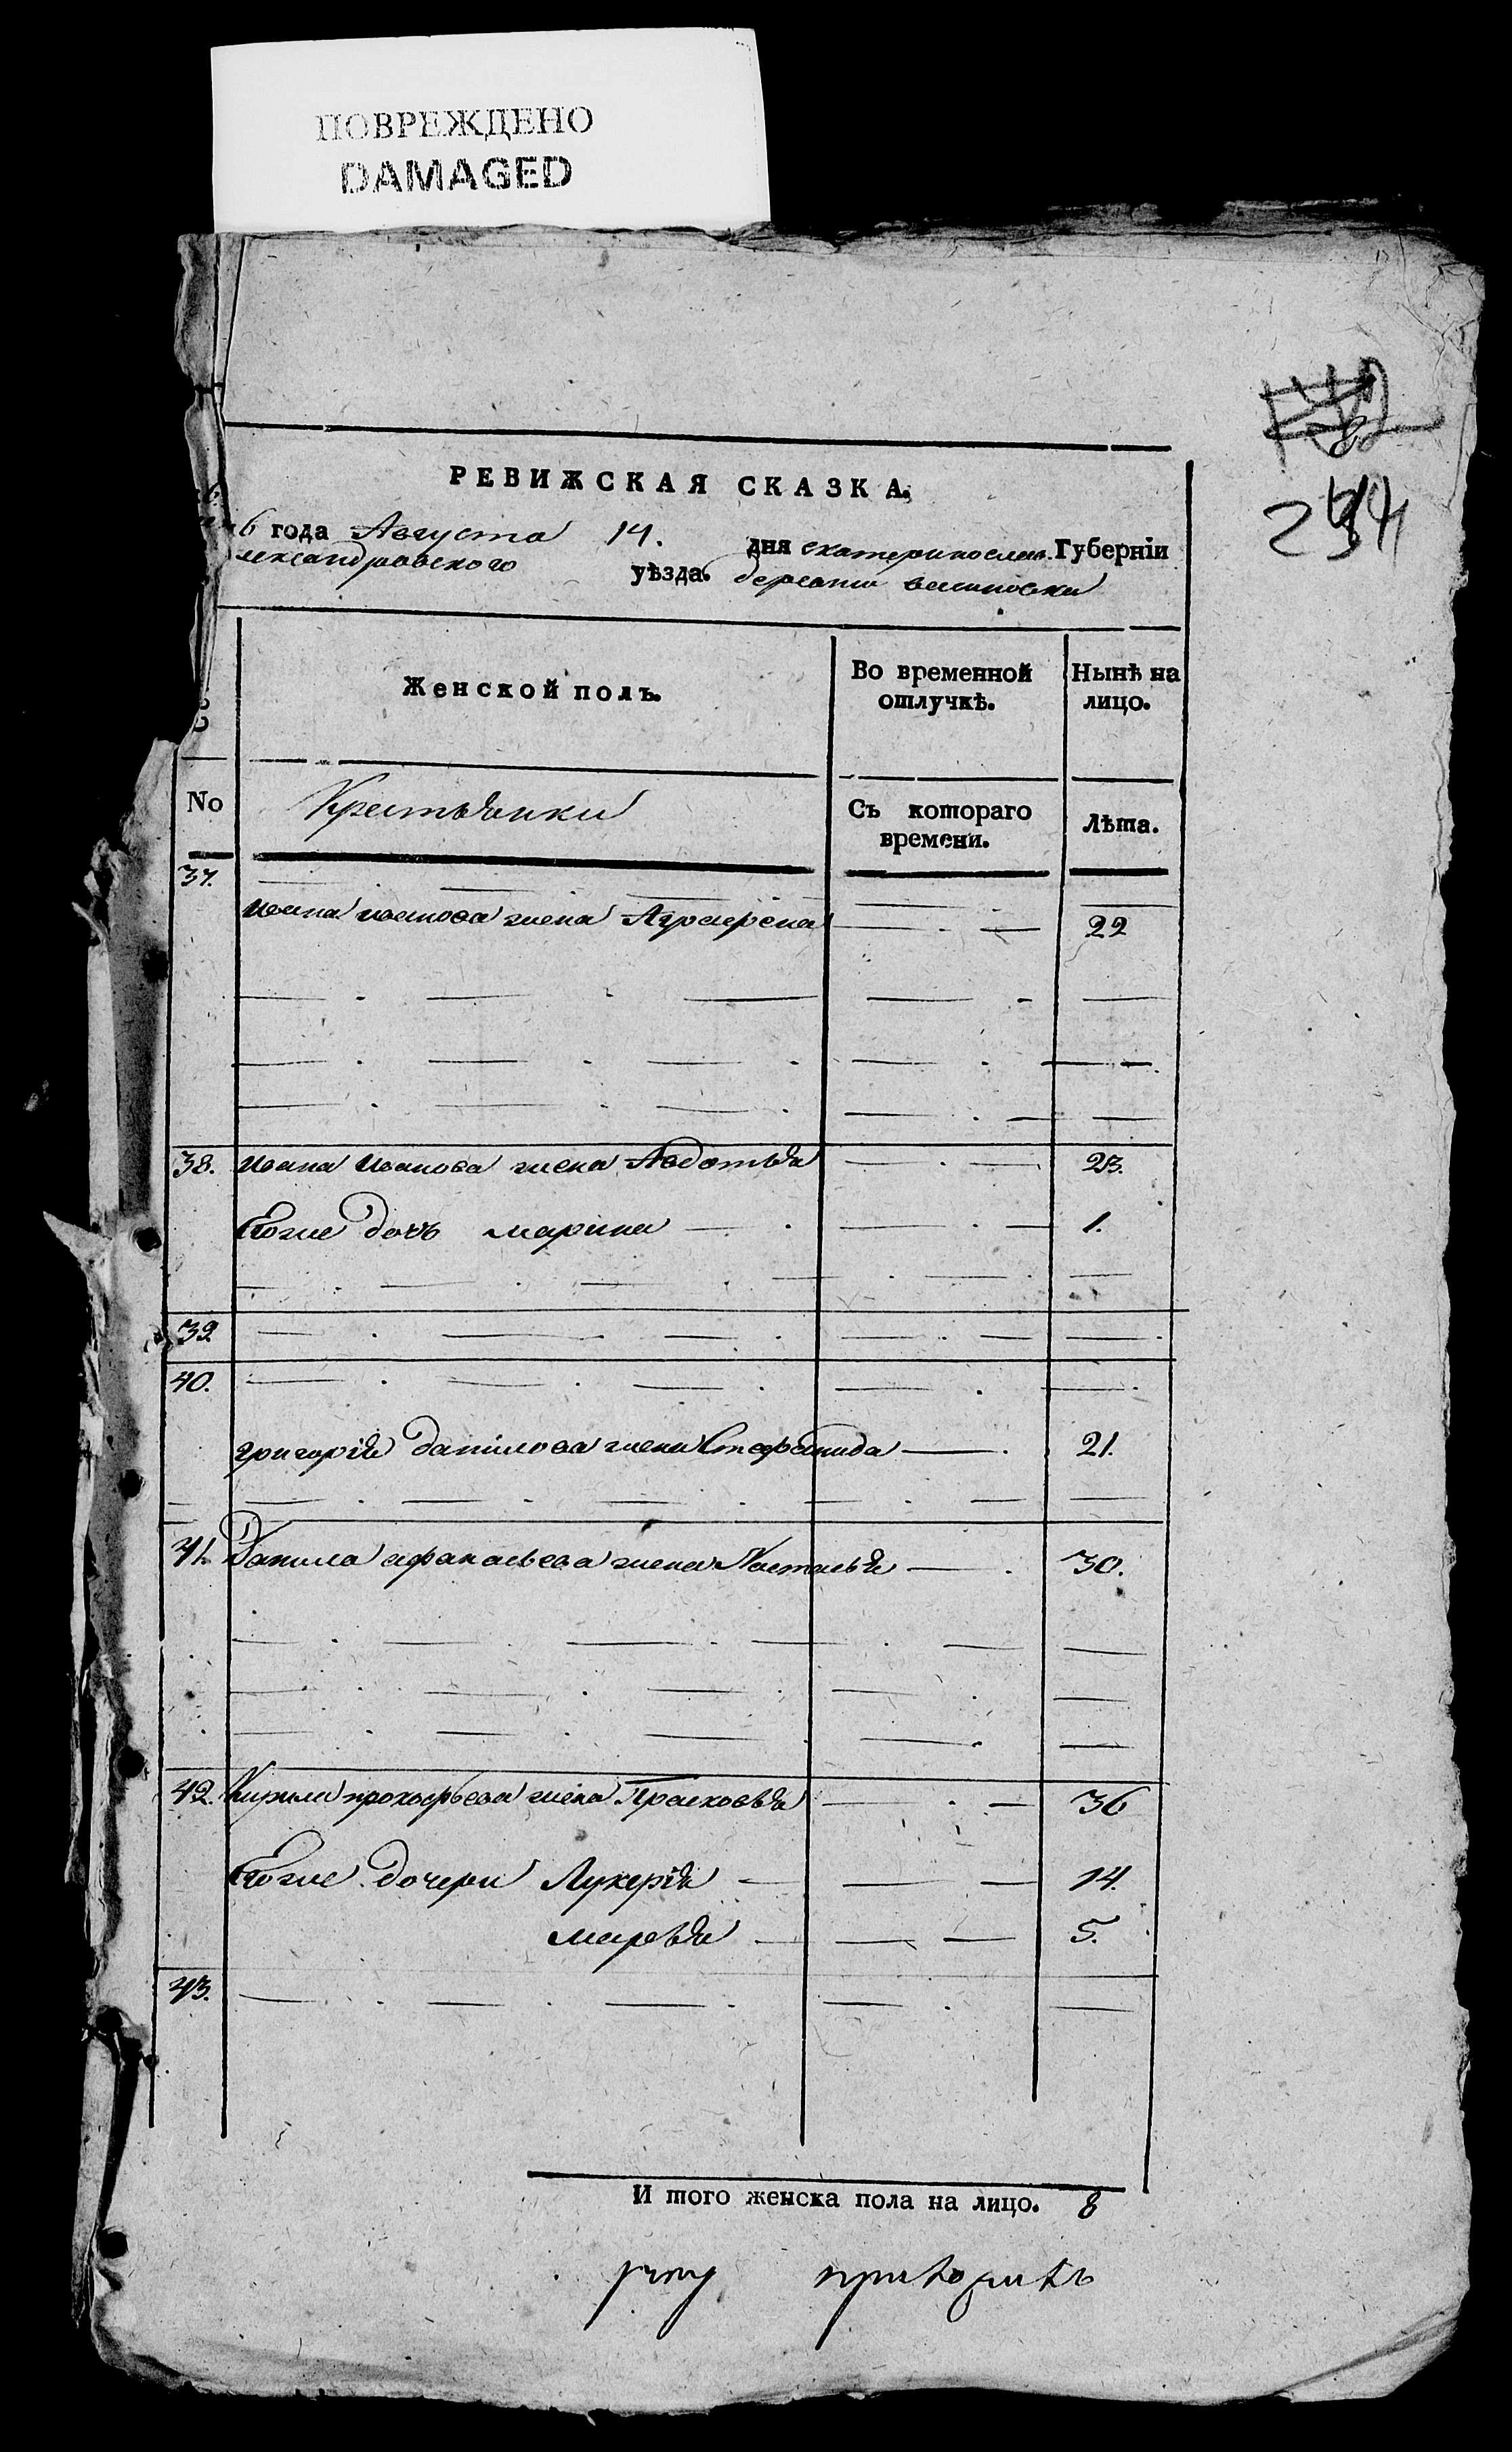 ПОВРЕЖДЕНО
DAMAGED
РЕВИЖСКАЯ СКАЗКА.
6 года Августа 14. дня екатеринослав. Губерніи
лександровского уѣзда. деревни
Женской полъ.
Во временной отлучкѣ.
Нынѣ на лицо.
No
Крестьянки
Съ котораго времени.
Лѣта.
37.
Ивана иванова жена Аграфена 22
38. Ивана Иванова жена Авдотья 23.
Егоже дочь марина 1.
39
40.
григорія данилова жена Стефанида 21.
41. Данила афанасьева жена Настасья 30.
42. Кирила прокофьева жена Прасковья 36
Егоже дочери Лукерія 14.
марья 5.
43.
И того женска пола на лицо. 8